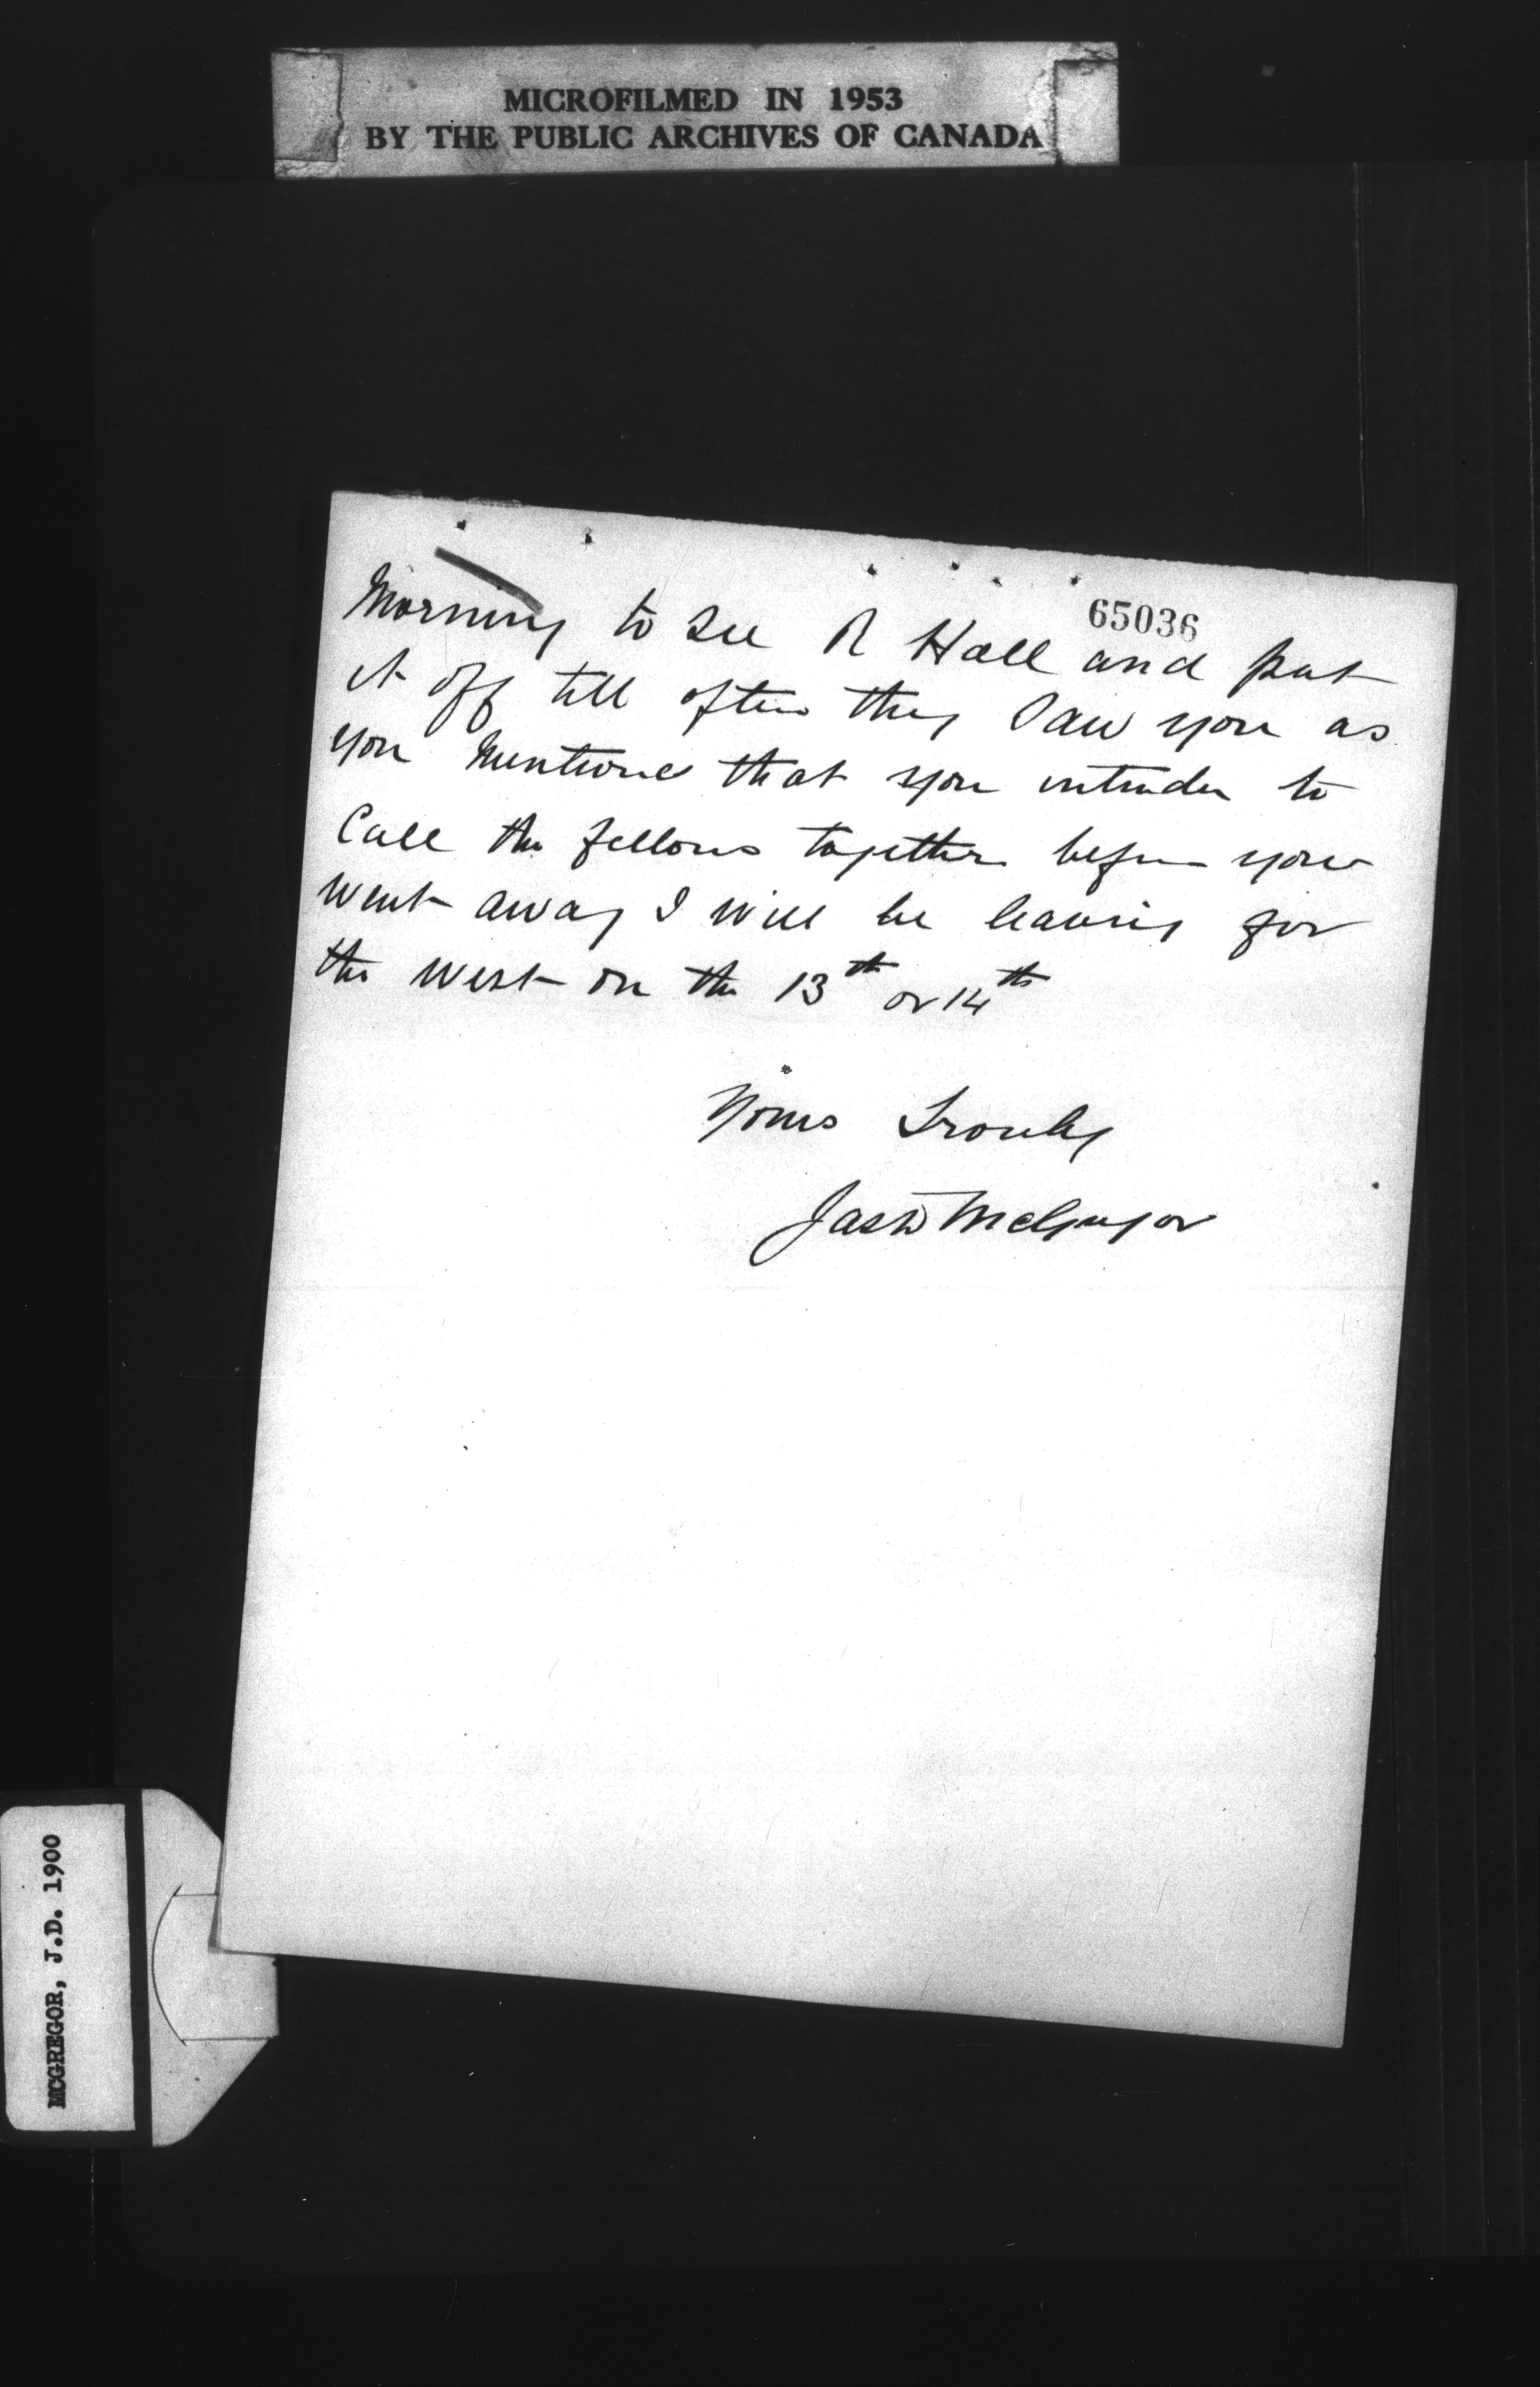 MICROFILMED IN 1953
BY THE PUBLIC ARCHIVES OF CANADA
65036
Morning to see R Hall and put
it off till after they Saw you as
you Mentioned that you intended to
Call the fellows together before you
went away I will be leaving for
the west on the 13th or 14th
Yours Truly
Jas D McGregor
MCGREGOR, J.D. 1900